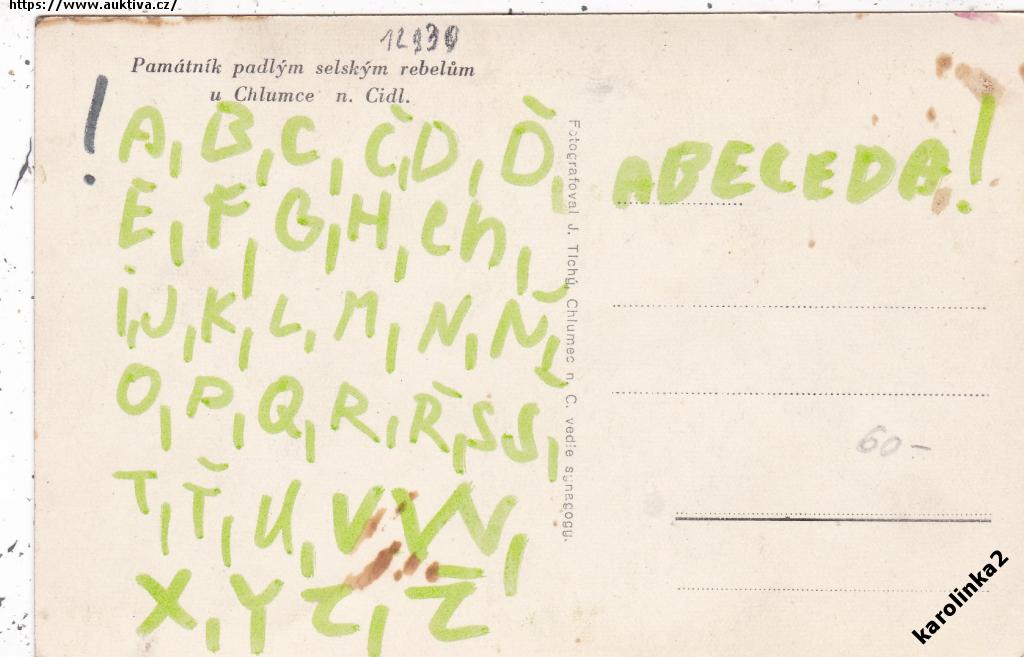 https://www.auktiva.cz/
Památník padlým selským rebelům
u Chlumce n. Cidl.
! A, B, C, Č, D, Ď,
E, F, G, H, Ch,
i, J, K, L, M, N, Ň,
O, P, Q, R, Ř, S, Š,
T, Ť, U, V, W,
X, Y, Z, Ž
Fotografoval J. Tichý, Chlumec n. C. vedle synagogy.
ABECEDA!
60-
karolinka2